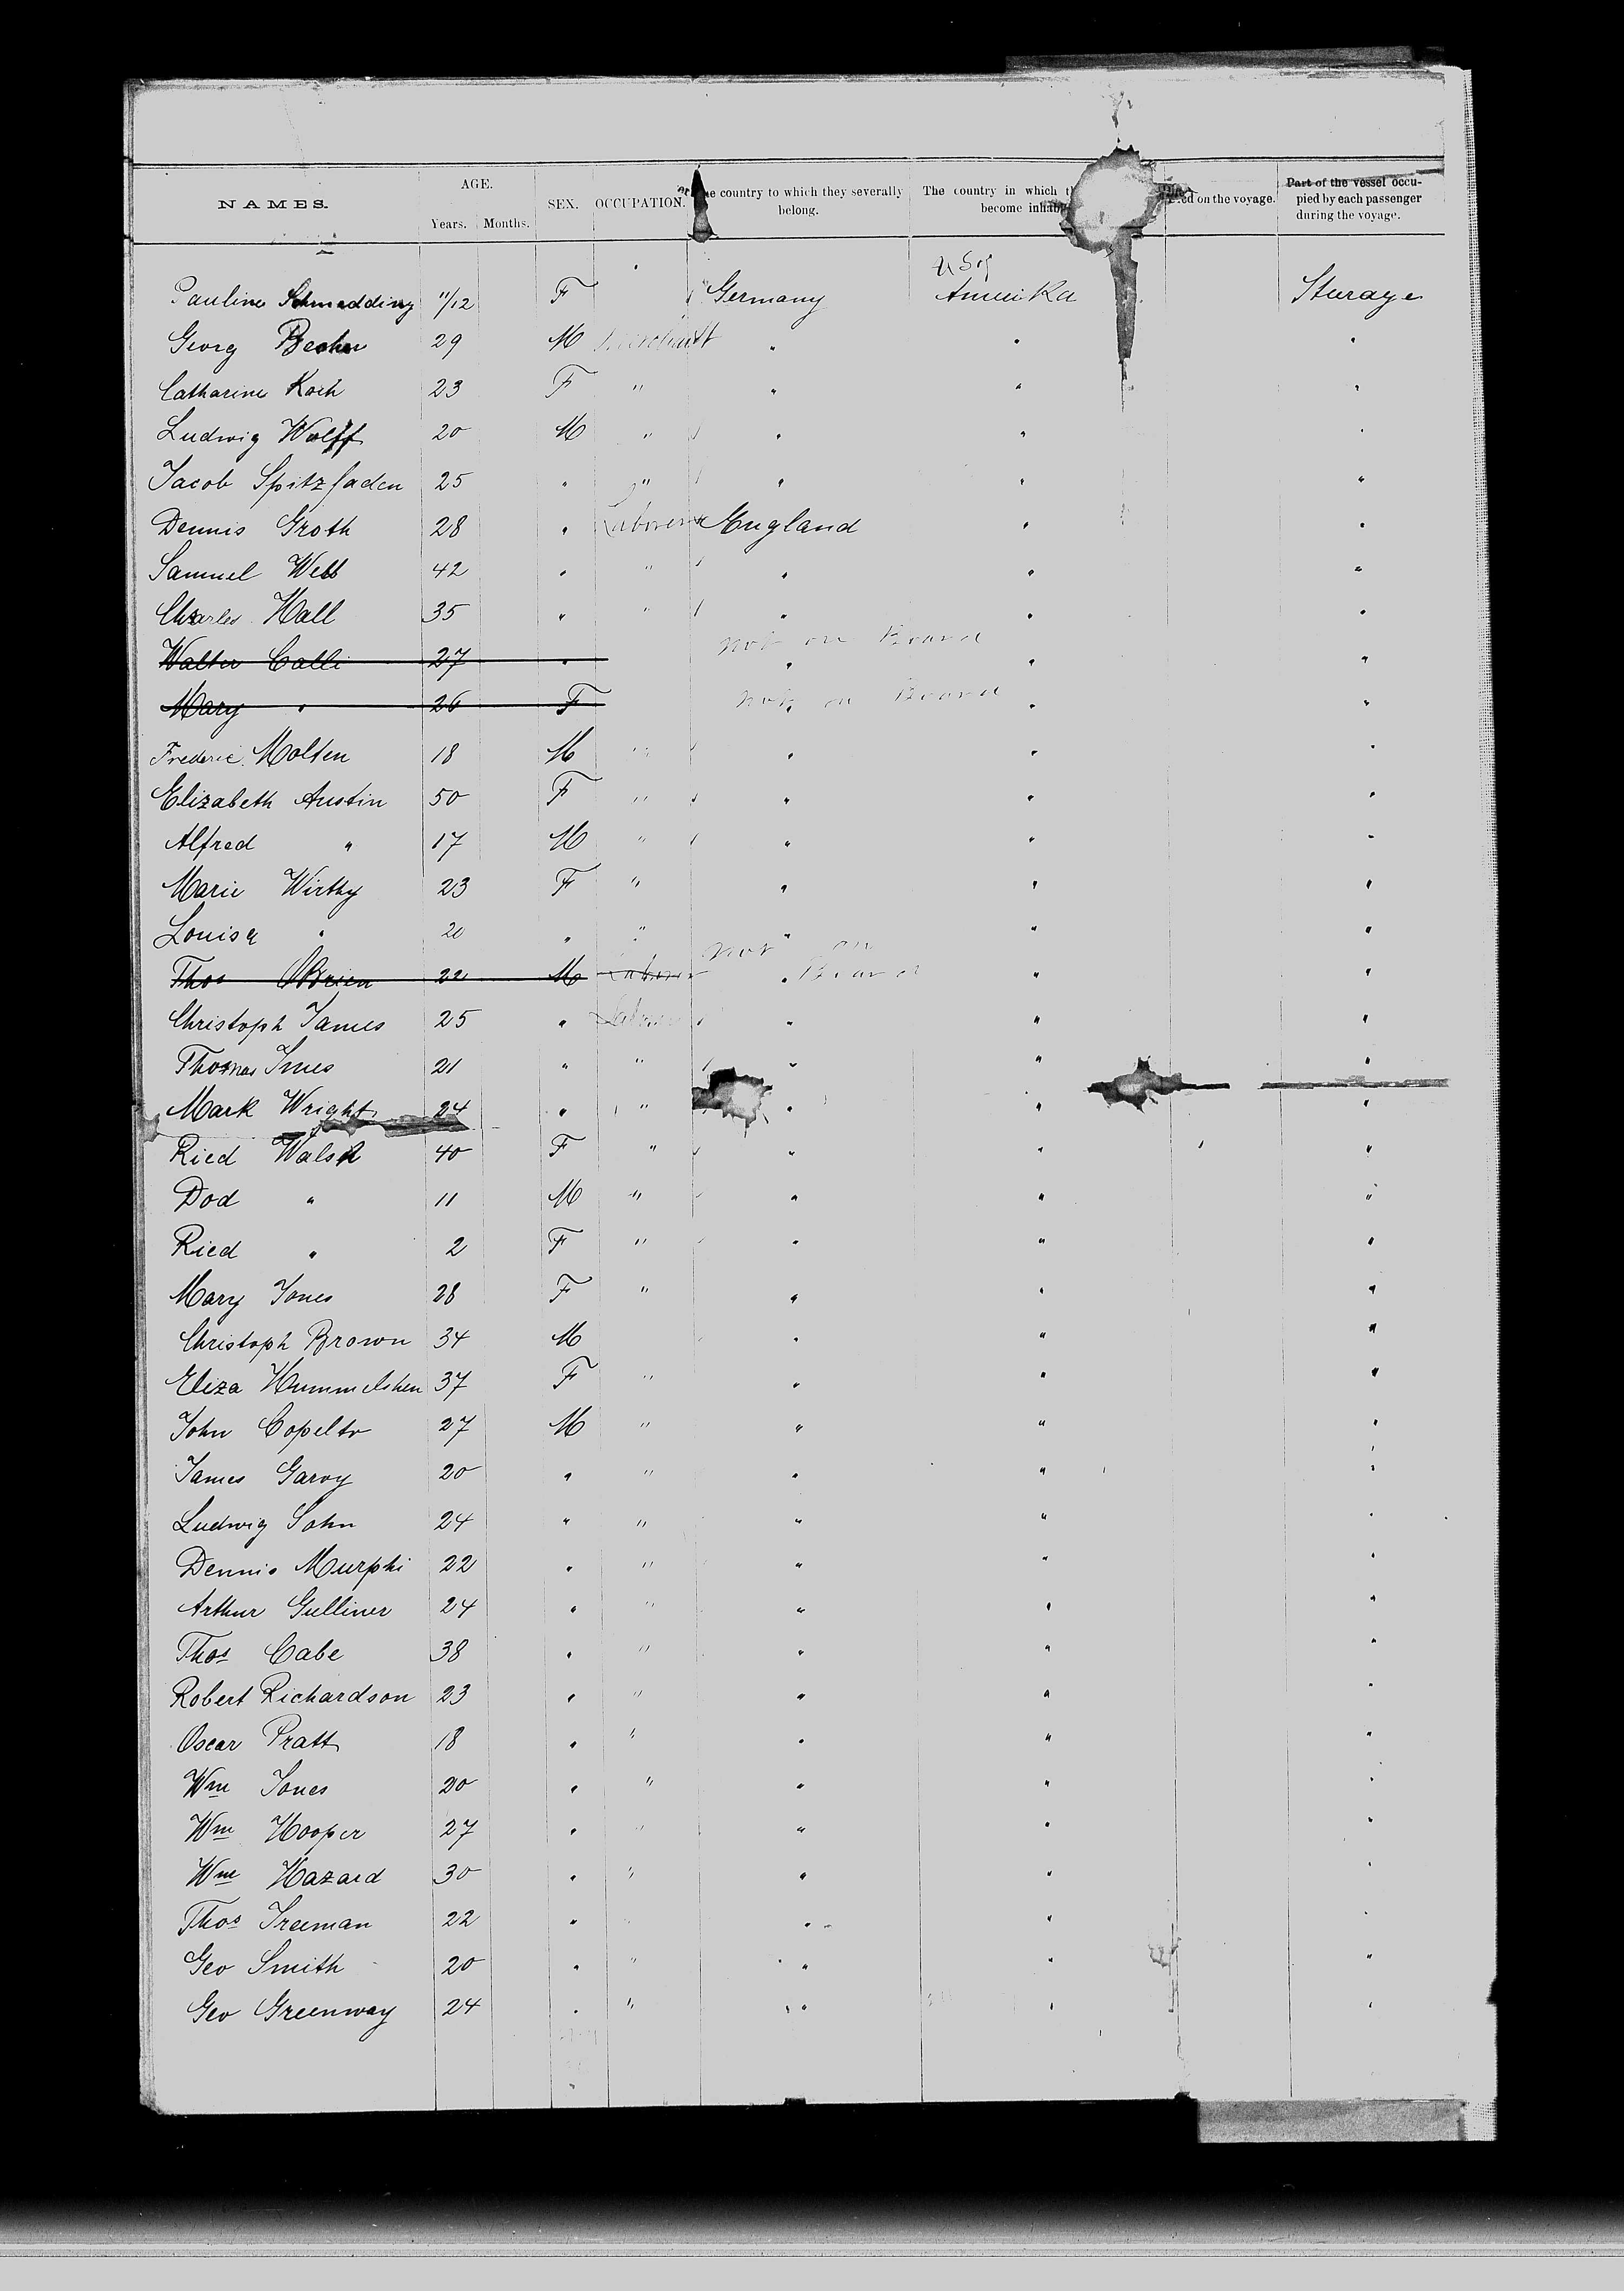 NAMES. AGE. Years. Months. SEX. OCCUPATION. country to which they severally belong. The country in which become on the voyage. Part of the vessel occupied by each passenger during the voyage.
U S of
Pauline Schmedding 11/12 F Germany Amerika Steerage
Georg Becher 29 M Merchant " " "
Catharine Koch 23 F " " " "
Ludwig Wolff 20 M " " " "
Jacob Spitzfaden 25 " " " " "
Dennis Groth 28 " Laborer England " "
Samuel Webb 42 " " " " "
Charles Hall 35 " " " " "
not on Board
Walter Calli 27 " " " "
not on Board
Mary " 26 F " " "
Frederic Molten 18 M " " " "
Elizabeth Austin 50 F " " " "
Alfred " 17 M " " " "
Marie Wirthy 23 F " " " "
Louisa " 20 " " " " "
not on Board
Thos OBrien 22 M Laborer " " "
Christoph James 25 " Laborer " " "
Thomas Imes 21 " " " " "
Mark Wright 24 " " " " "
Ried Walsh 40 F " " " "
Dod " 11 M " " " "
Ried " 2 F " " " "
Mary Jones 28 F " " " "
Christoph Brown 34 M " " "
Eliza Hummelshen 37 F " " " "
John Copelto 27 M " " " "
James Garvy 20 " " " " "
Ludwig Sohn 24 " " " " "
Dennis Murphi 22 " " " " "
Arthur Gulliner 24 " " " " "
Thos Cabe 38 " " " " "
Robert Richardson 23 " " " " "
Oscar Pratt 18 " " " " "
Wm Jones 20 " " " " "
Wm Hooper 27 " " " " "
Wm Hazard 30 " " " " "
Thos Freeman 22 " " " " "
Geo Smith 20 " " " " "
Geo Greenway 24 " " " " "